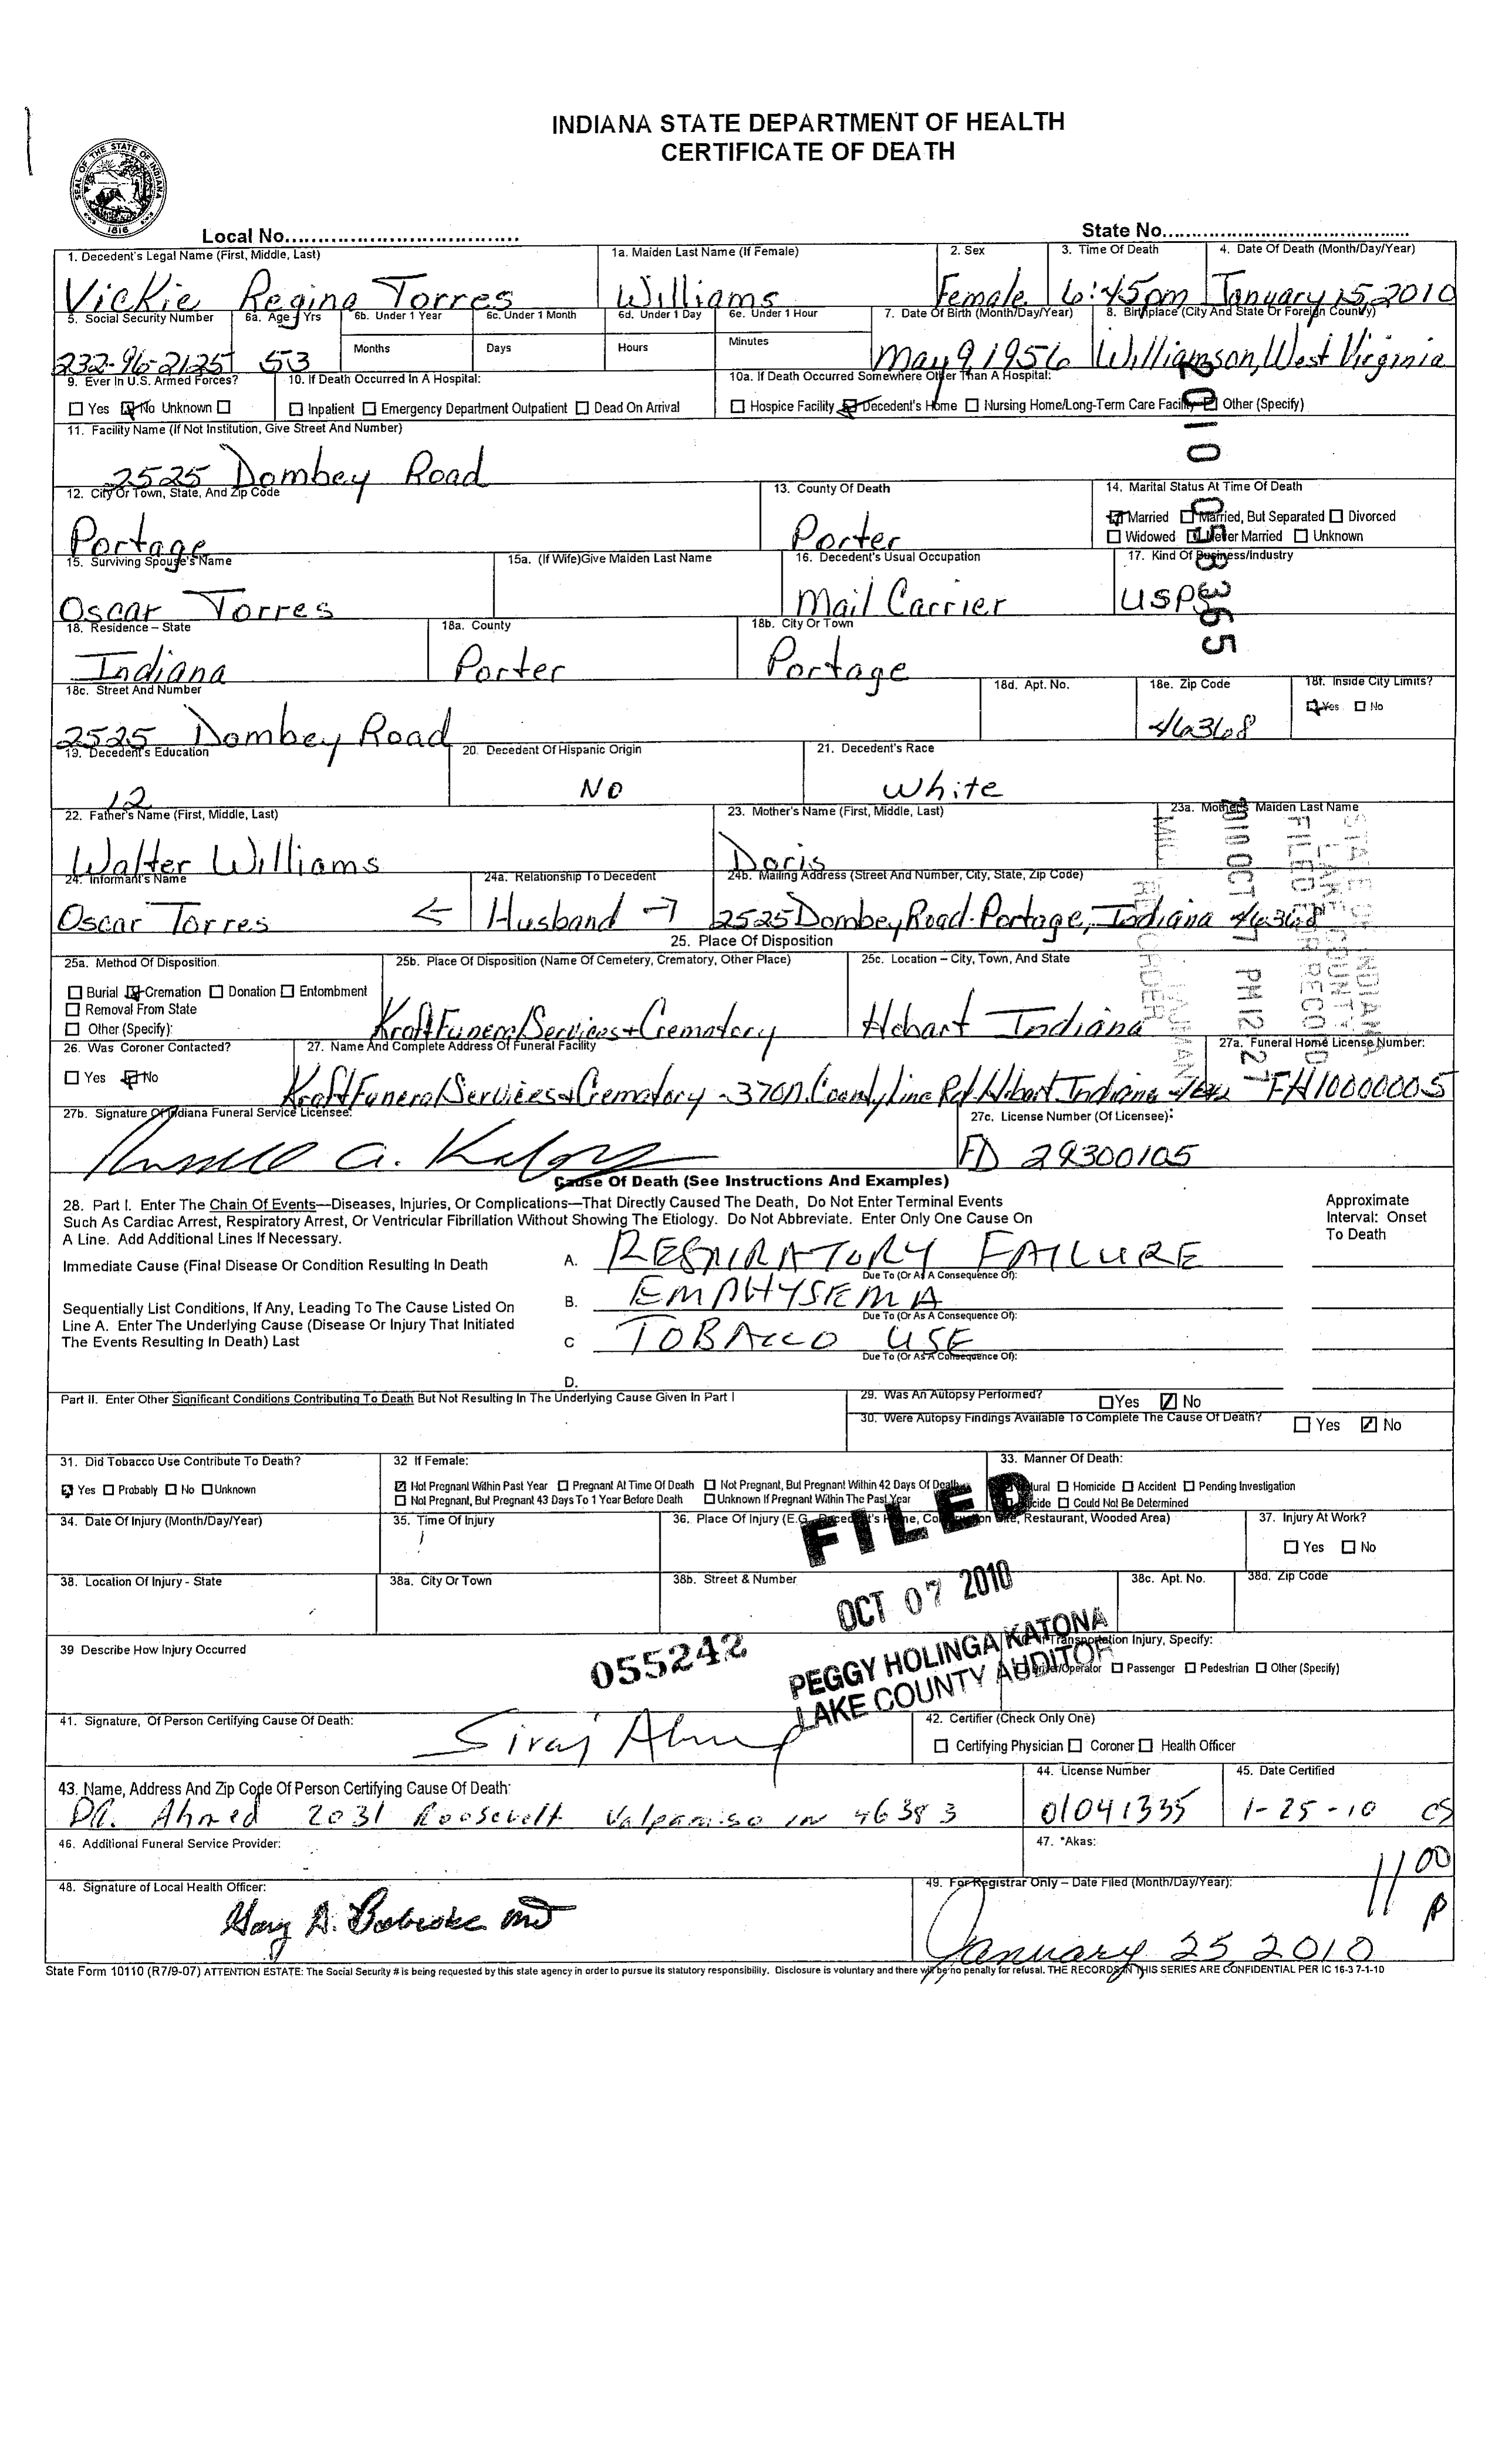 INDIANA STATE DEPARTMENT OF HEALTH
CERTIFICATE OF DEATH
SEAL OF THE STATE OF INDIANA
1816
Local No.
State No.
1. Decedent's Legal Name (First, Middle, Last)
Vickie Regina Torres
1a. Maiden Last Name (If Female)
Williams
2. Sex
Female
3. Time Of Death
6:45pm
4. Date Of Death (Month/Day/Year)
January 15, 2010
5. Social Security Number
232-96-2125
6a. Age Yrs
53
6b. Under 1 Year
Months
6c. Under 1 Month
Days
6d. Under 1 Day
Hours
6e. Under 1 Hour
Minutes
7. Date Of Birth (Month/Day/Year)
May 9, 1956
8. Birthplace (City And State Or Foreign County)
Williamson, West Virginia
9. Ever In U.S. Armed Forces?
Yes No Unknown
10. If Death Occurred In A Hospital:
Inpatient Emergency Department Outpatient Dead On Arrival
10a. If Death Occurred Somewhere Other Than A Hospital:
Hospice Facility Decedent's Home Nursing Home/Long-Term Care Facility Other (Specify)
11. Facility Name (If Not Institution, Give Street And Number)
2525 Dombey Road
12. City Or Town, State, And Zip Code
Portage
13. County Of Death
Porter
14. Marital Status At Time Of Death
Married Married, But Separated Divorced
Widowed Never Married Unknown
15. Surviving Spouse's Name
Oscar Torres
15a. (If Wife)Give Maiden Last Name
16. Decedent's Usual Occupation
Mail Carrier
17. Kind Of Business/Industry
USPS
2010 058365
18. Residence – State
Indiana
18a. County
Porter
18b. City Or Town
Portage
18c. Street And Number
2525 Dombey Road
18d. Apt. No.
18e. Zip Code
46368
18f. Inside City Limits?
Yes No
19. Decedent's Education
12
20. Decedent Of Hispanic Origin
No
21. Decedent's Race
White
22. Father's Name (First, Middle, Last)
Walter Williams
23. Mother's Name (First, Middle, Last)
Doris
23a. Mother's Maiden Last Name
STATE OF INDIANA
LAKE COUNTY
FILED FOR RECORD
2010 OCT -7 PM 12: 27
RECORDER
24. Informant's Name
Oscar Torres
24a. Relationship To Decedent
← Husband →
24b. Mailing Address (Street And Number, City, State, Zip Code)
2525 Dombey Road - Portage, Indiana 46368
25. Place Of Disposition
25a. Method Of Disposition
Burial Cremation Donation Entombment
Removal From State
Other (Specify):
25b. Place Of Disposition (Name Of Cemetery, Crematory, Other Place)
Kraft Funeral Services + Crematory
25c. Location – City, Town, And State
Hobart Indiana
26. Was Coroner Contacted?
Yes No
27. Name And Complete Address Of Funeral Facility
Kraft Funeral Services + Crematory - 370 N. County Line Rd. Hobart Indiana
27a. Funeral Home License Number:
FH10000005
27b. Signature Of Indiana Funeral Service Licensee:
27c. License Number (Of Licensee):
FD 29300105
Cause Of Death (See Instructions And Examples)
28. Part I. Enter The Chain Of Events—Diseases, Injuries, Or Complications—That Directly Caused The Death, Do Not Enter Terminal Events
Such As Cardiac Arrest, Respiratory Arrest, Or Ventricular Fibrillation Without Showing The Etiology. Do Not Abbreviate. Enter Only One Cause On
A Line. Add Additional Lines If Necessary.
Approximate
Interval: Onset
To Death
Immediate Cause (Final Disease Or Condition Resulting In Death
A. RESPIRATORY FAILURE
Due To (Or As A Consequence Of):
Sequentially List Conditions, If Any, Leading To The Cause Listed On
Line A. Enter The Underlying Cause (Disease Or Injury That Initiated
The Events Resulting In Death) Last
B. EMPHYSEMA
Due To (Or As A Consequence Of):
C TOBACCO USE
Due To (Or As A Consequence Of):
D.
Part II. Enter Other Significant Conditions Contributing To Death But Not Resulting In The Underlying Cause Given In Part I
29. Was An Autopsy Performed?
Yes No
30. Were Autopsy Findings Available To Complete The Cause Of Death?
Yes No
31. Did Tobacco Use Contribute To Death?
Yes Probably No Unknown
32 If Female:
Not Pregnant Within Past Year Pregnant At Time Of Death Not Pregnant, But Pregnant Within 42 Days Of Death
Not Pregnant, But Pregnant 43 Days To 1 Year Before Death Unknown If Pregnant Within The Past Year
33. Manner Of Death:
Natural Homicide Accident Pending Investigation
Suicide Could Not Be Determined
34. Date Of Injury (Month/Day/Year)
35. Time Of Injury
36. Place Of Injury (E.G., Decedent's Home, Construction Site, Restaurant, Wooded Area)
37. Injury At Work?
Yes No
FILED
OCT 07 2010
PEGGY HOLINGA KATONA
LAKE COUNTY AUDITOR
38. Location Of Injury - State
38a. City Or Town
38b. Street & Number
38c. Apt. No.
38d. Zip Code
39 Describe How Injury Occurred
055242
Transportation Injury, Specify:
Driver/Operator Passenger Pedestrian Other (Specify)
41. Signature, Of Person Certifying Cause Of Death:
Siraj Ahmed
42. Certifier (Check Only One)
Certifying Physician Coroner Health Officer
43. Name, Address And Zip Code Of Person Certifying Cause Of Death:
DR. Ahmed 2031 Roosevelt Valparaiso IN 46383
44. License Number
01041335
45. Date Certified
1-25-10 CS
46. Additional Funeral Service Provider:
47. *Akas:
11 00
48. Signature of Local Health Officer:
49. For Registrar Only – Date Filed (Month/Day/Year):
January 25, 2010
State Form 10110 (R7/9-07) ATTENTION ESTATE: The Social Security # is being requested by this state agency in order to pursue its statutory responsibility. Disclosure is voluntary and there will be no penalty for refusal. THE RECORDS IN THIS SERIES ARE CONFIDENTIAL PER IC 16-3 7-1-10